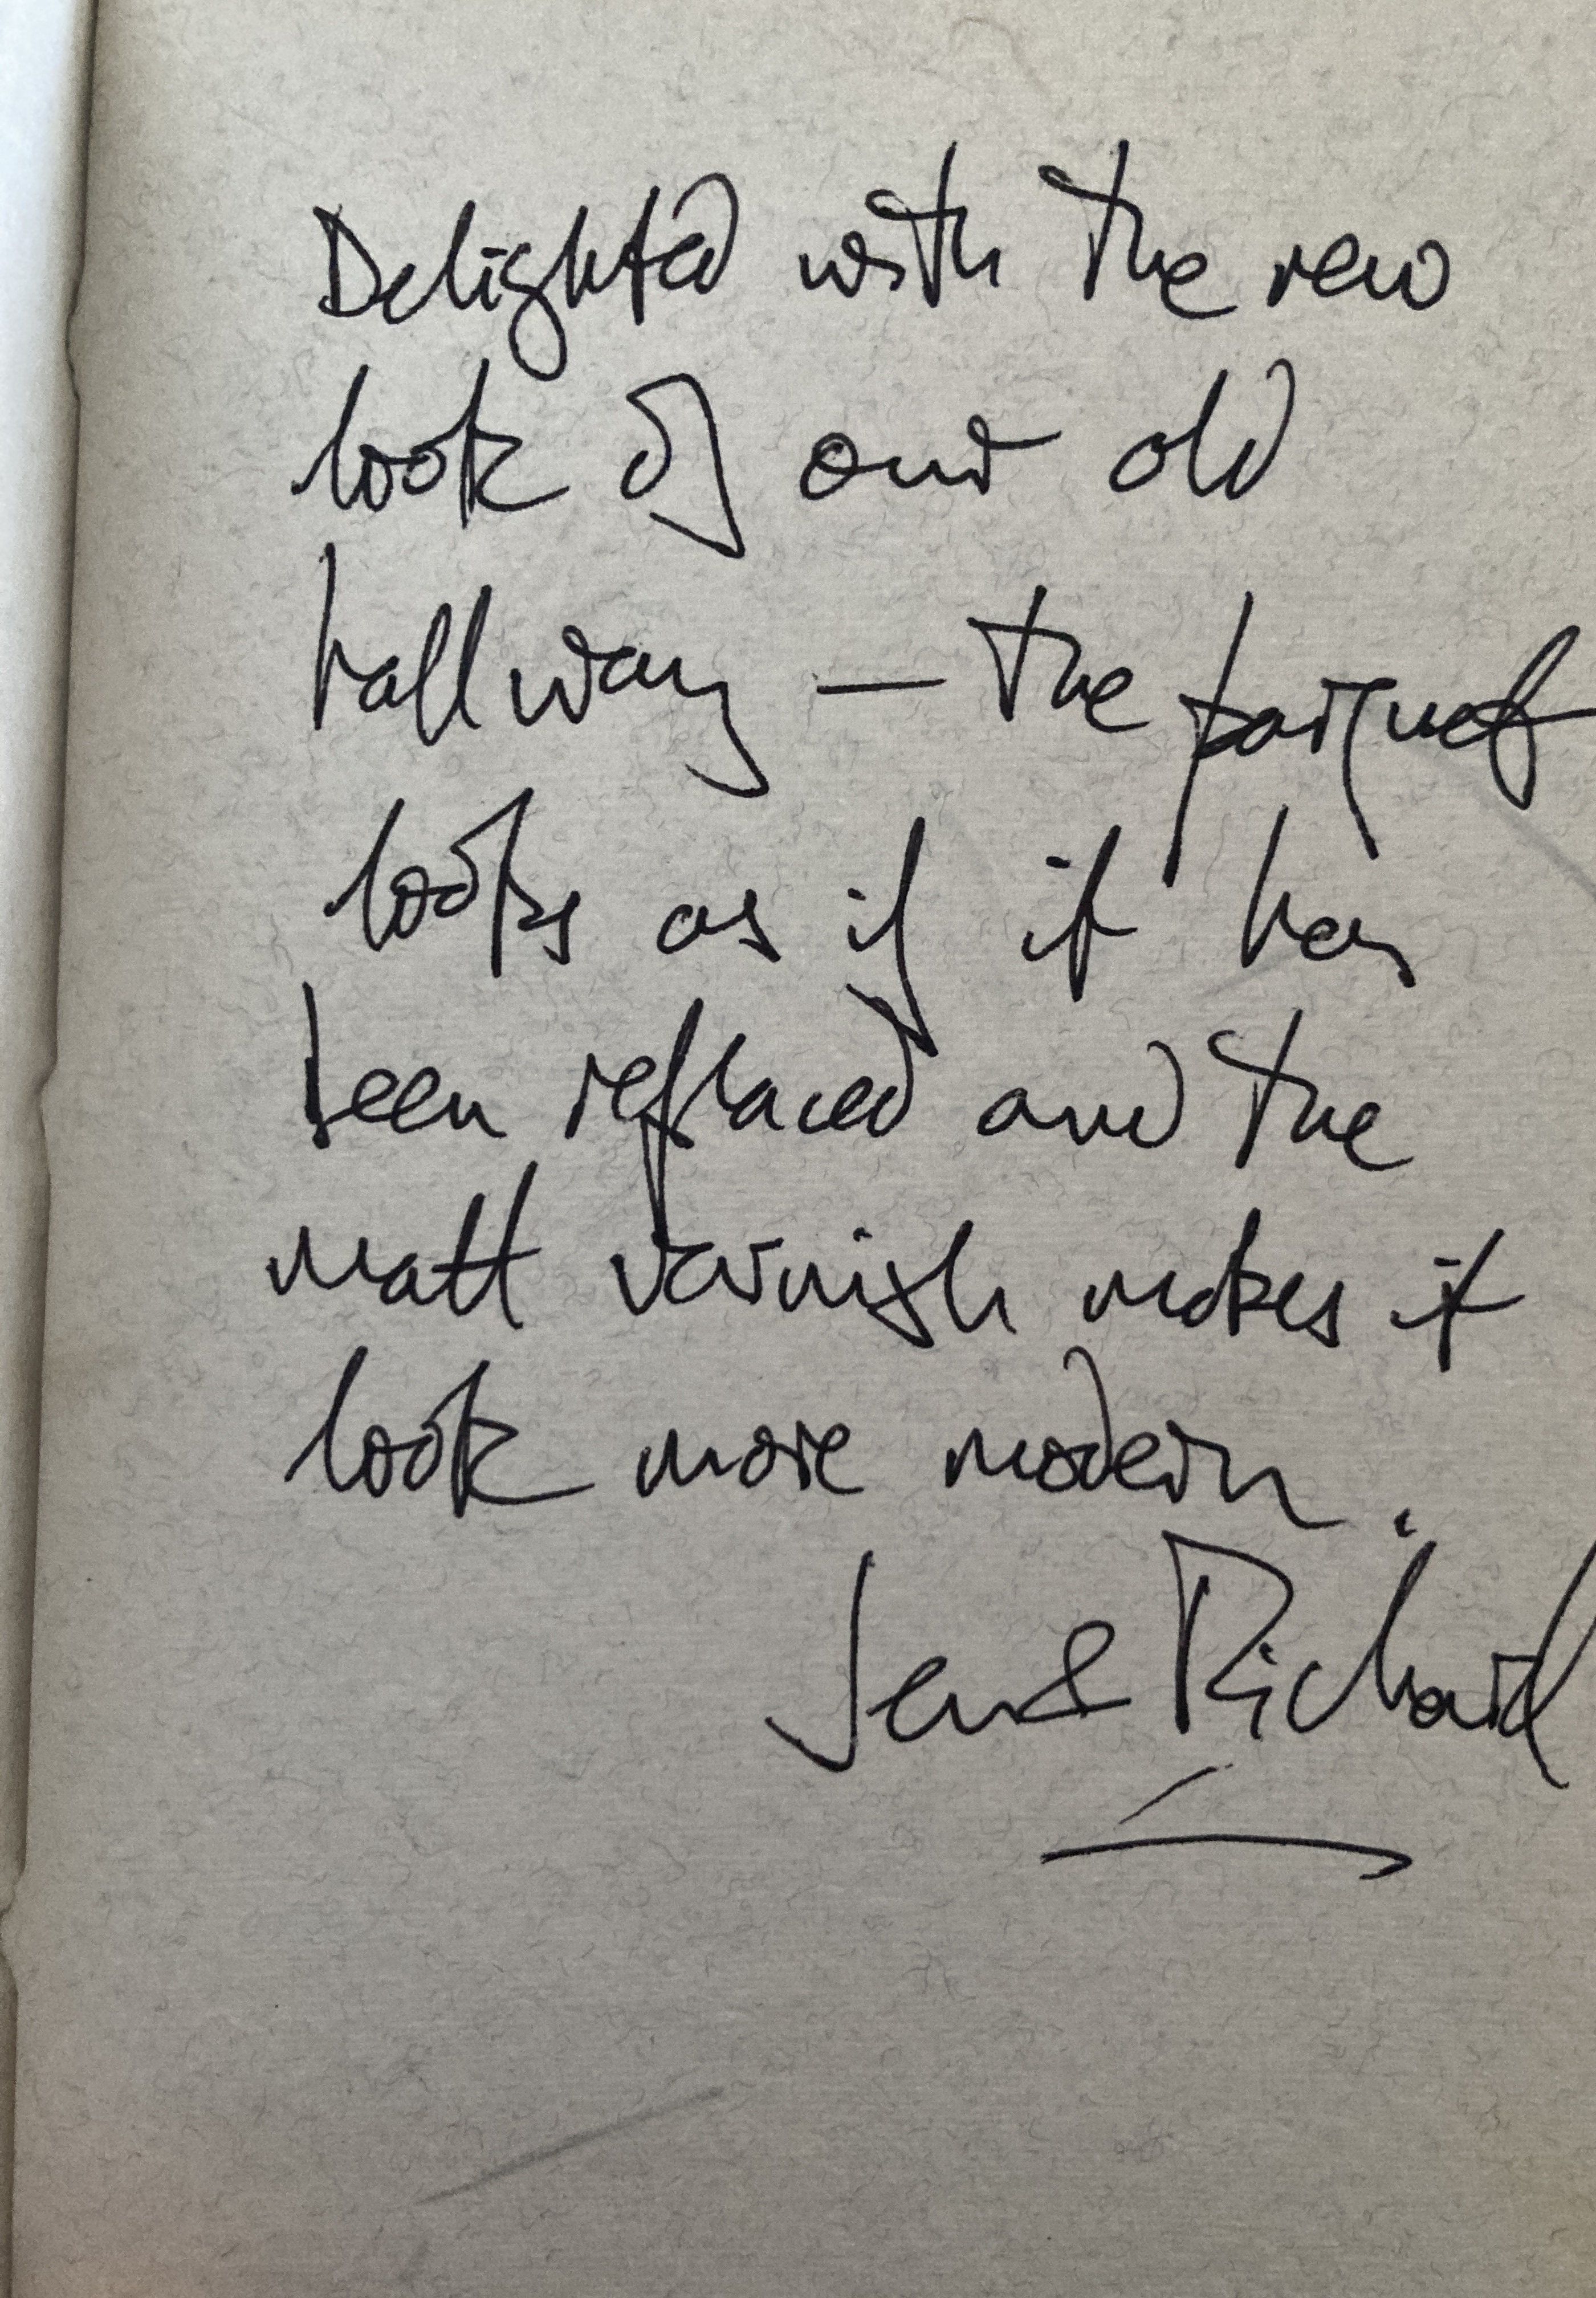 Delighted with the new
look of our old
hallway — the parquet
looks as if it has
been replaced and the
matt varnish makes it
look more modern.
Jen & Richard